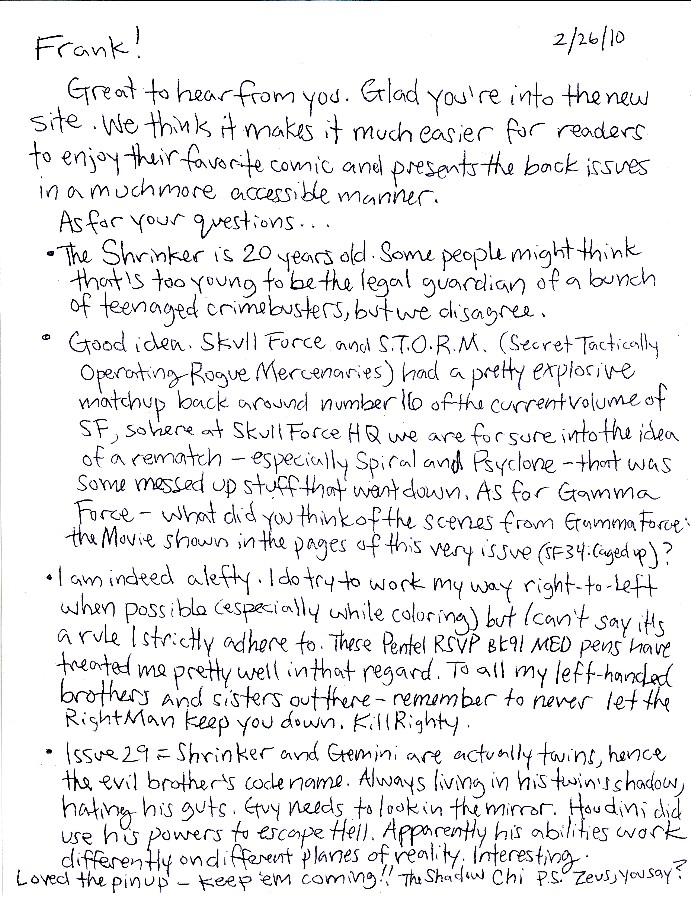 Frank!
2/26/10
Great to hear from you. Glad you're into the new
site. We think it makes it much easier for readers
to enjoy their favorite comic and presents the back issues
in a much more accessible manner.
As for your questions...
• The Shrinker is 20 years old. Some people might think
that's too young to be the legal guardian of a bunch
of teenaged crimebusters, but we disagree.
• Good idea. Skull Force and S.T.O.R.M. (Secret Tactically
Operating Rogue Mercenaries) had a pretty explosive
matchup back around number 16 of the current volume of
SF, so here at Skull Force HQ we are for sure into the idea
of a rematch - especially Spiral and Psyclone - that was
some messed up stuff that went down. As for Gamma
Force - what did you think of the scenes from Gamma Force:
the Movie shown in the pages of this very issue (SF34: Caged up)?
• I am indeed a lefty. I do try to work my way right-to-left
when possible (especially while coloring) but I can't say it's
a rule I strictly adhere to. These Pentel RSVP BK91 MED pens have
treated me pretty well in that regard. To all my left-handed
brothers and sisters out there - remember to never let the
Right Man keep you down. Kill Righty.
• Issue 29 = Shrinker and Gemini are actually twins, hence
the evil brother's code name. Always living in his twin's shadow,
hating his guts. Guy needs to look in the mirror. Houdini did
use his powers to escape Hell. Apparently his abilities work
differently on different planes of reality. Interesting.
Loved the pinup - keep 'em coming!! The Shadow Chi P.S. Zeus, you say?